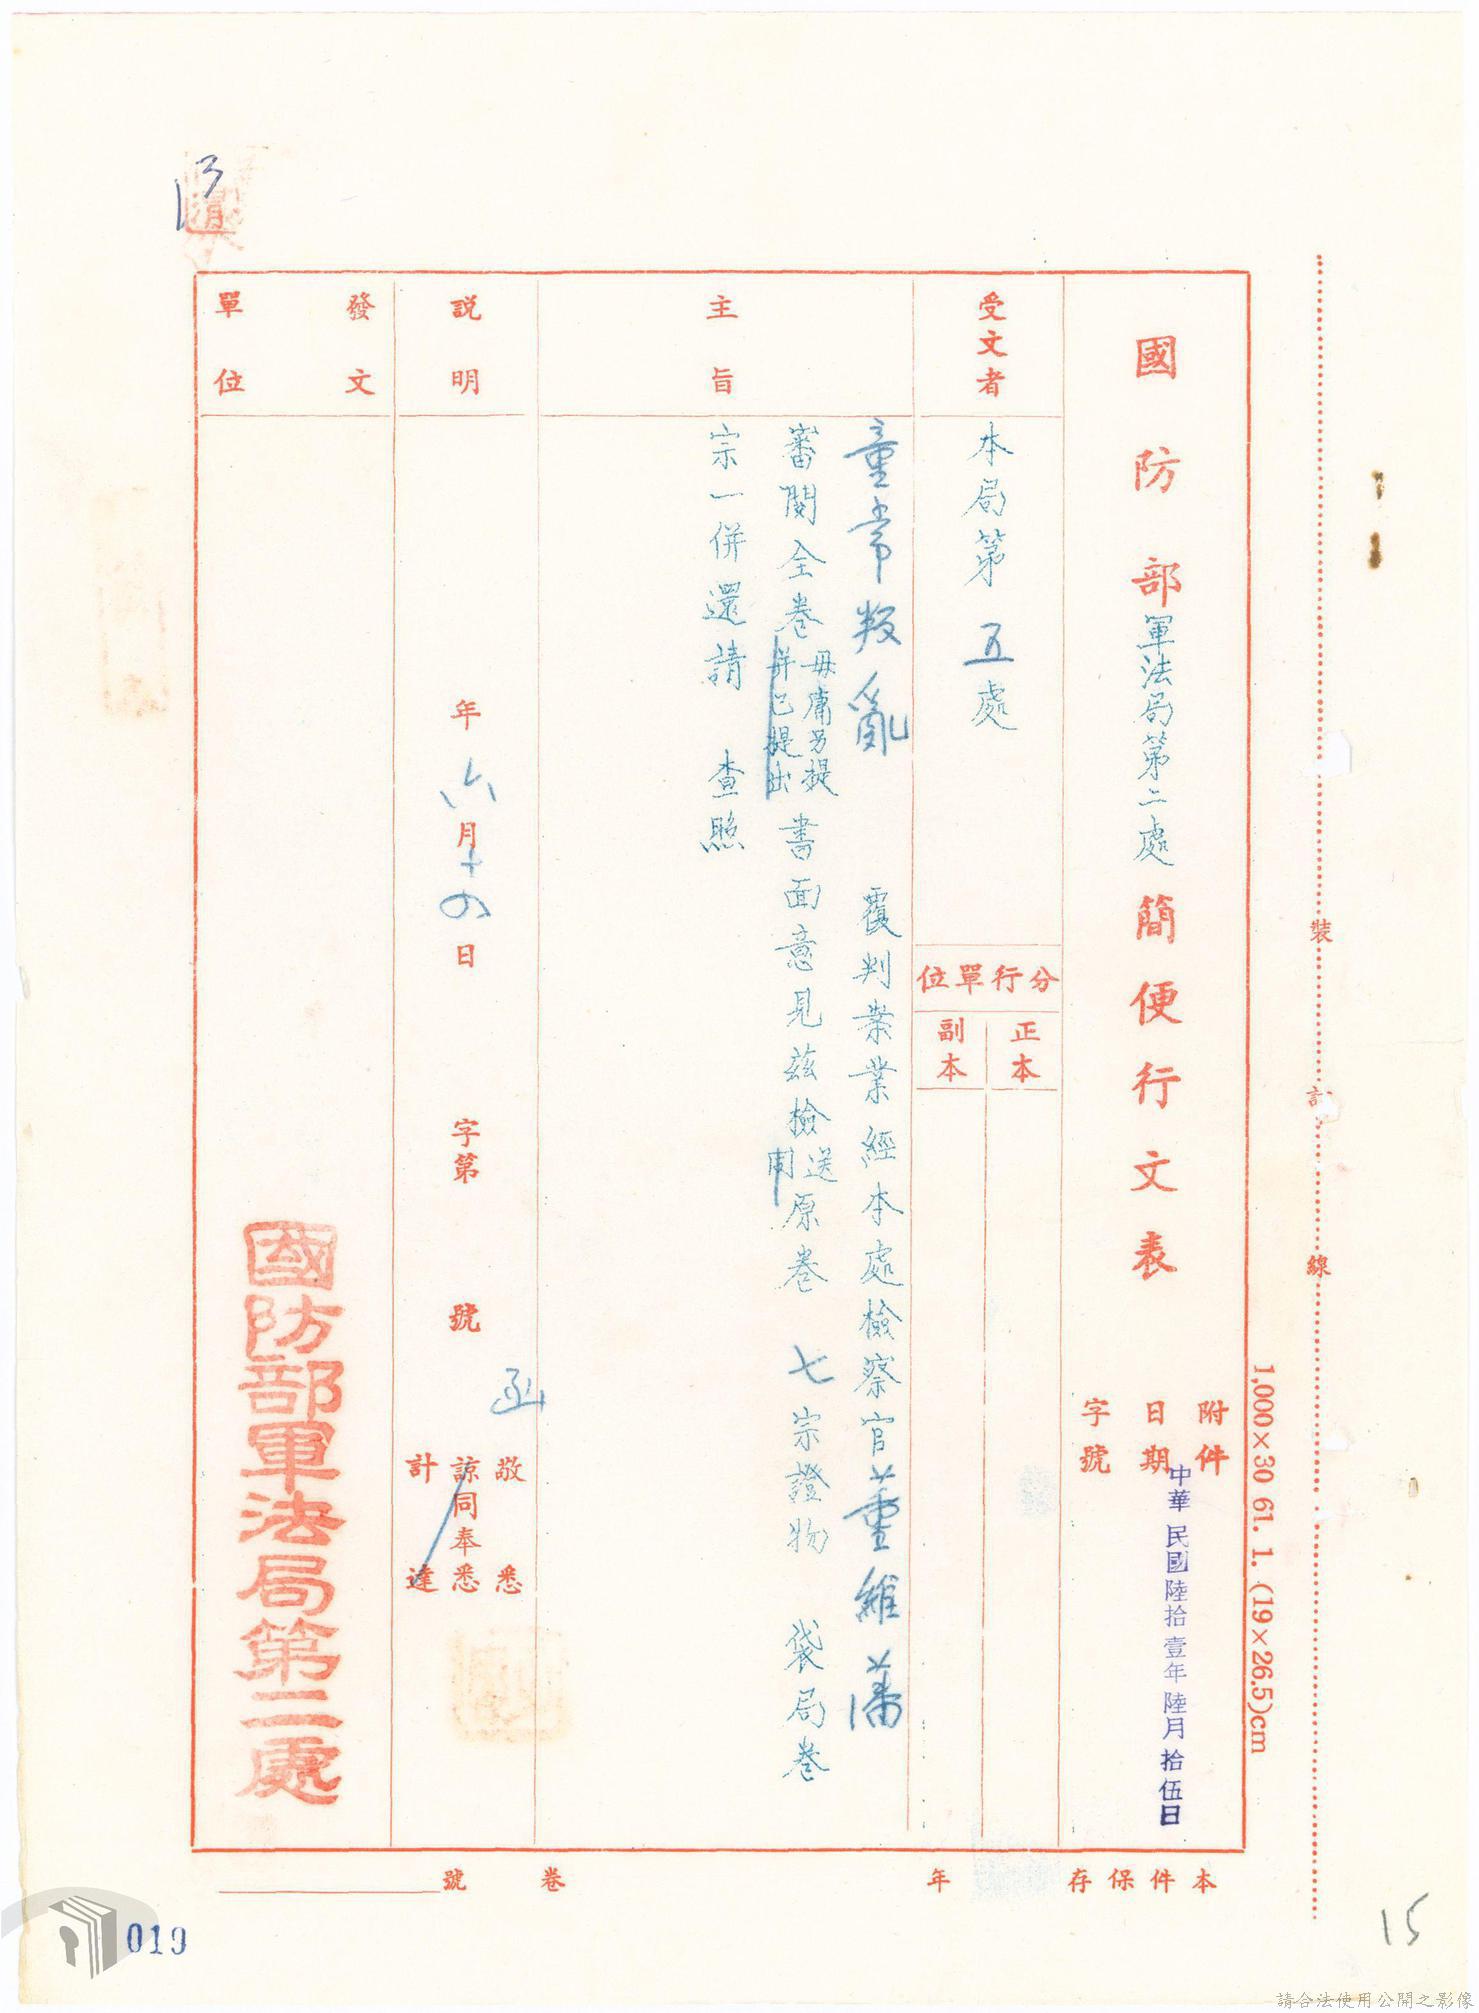 裝訂線
1,000×30 61. 1. (19×26.5)cm
國防部軍法局第二處簡便行文表
附件
日期 中華民國陸拾壹年陸月拾伍日
字號
受文者
本局第五處
分行單位
正本
副本
主旨
童常叛亂 覆判案業經本處檢察官董維藩
審閱全卷毋庸另提併已提出書面意見茲檢送同原卷 七宗證物 袋局卷
宗一併還請 查照
說明
年六月十四日 字第 號函
敬悉
諒同奉悉
計達
發文單位
國防部軍法局第二處
本件保存 年
卷 號
13
15
019
請合法使用公開之影像